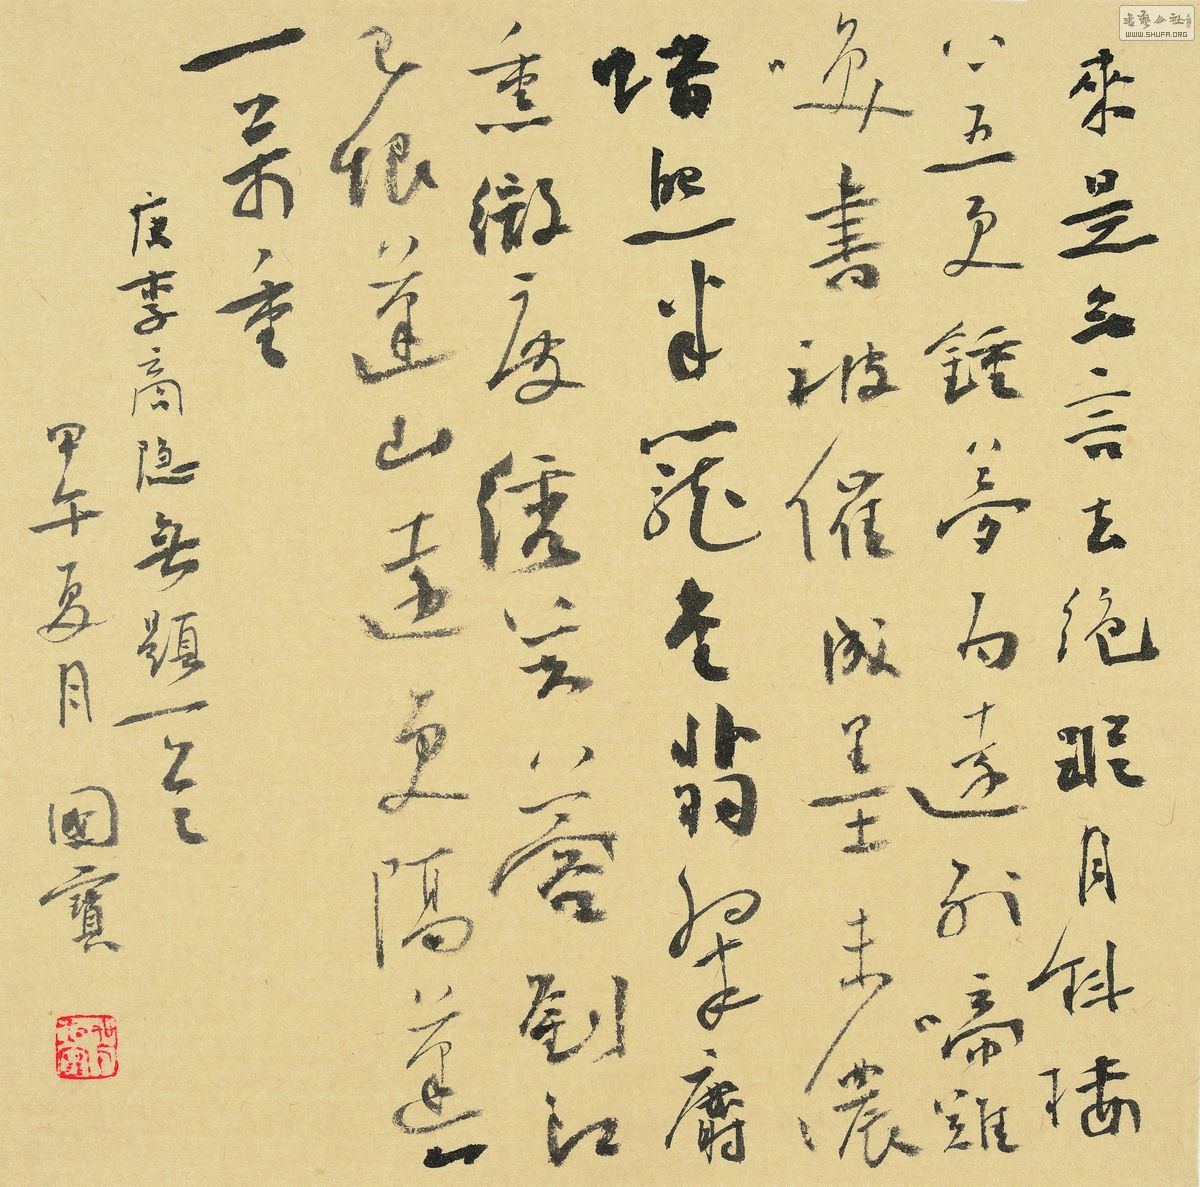 來是空言去绝踪月斜楼
上五更鍾夢为遠别啼難
唤書被催成墨未濃
蜡照半籠金翡翠麝
熏微度绣芙蓉劉郎
已恨蓬山遠更隔蓬山
一萬重
唐李商隐無題一首
甲午夏月 國寶
書藝公社
WWW.SHUFA.ORG